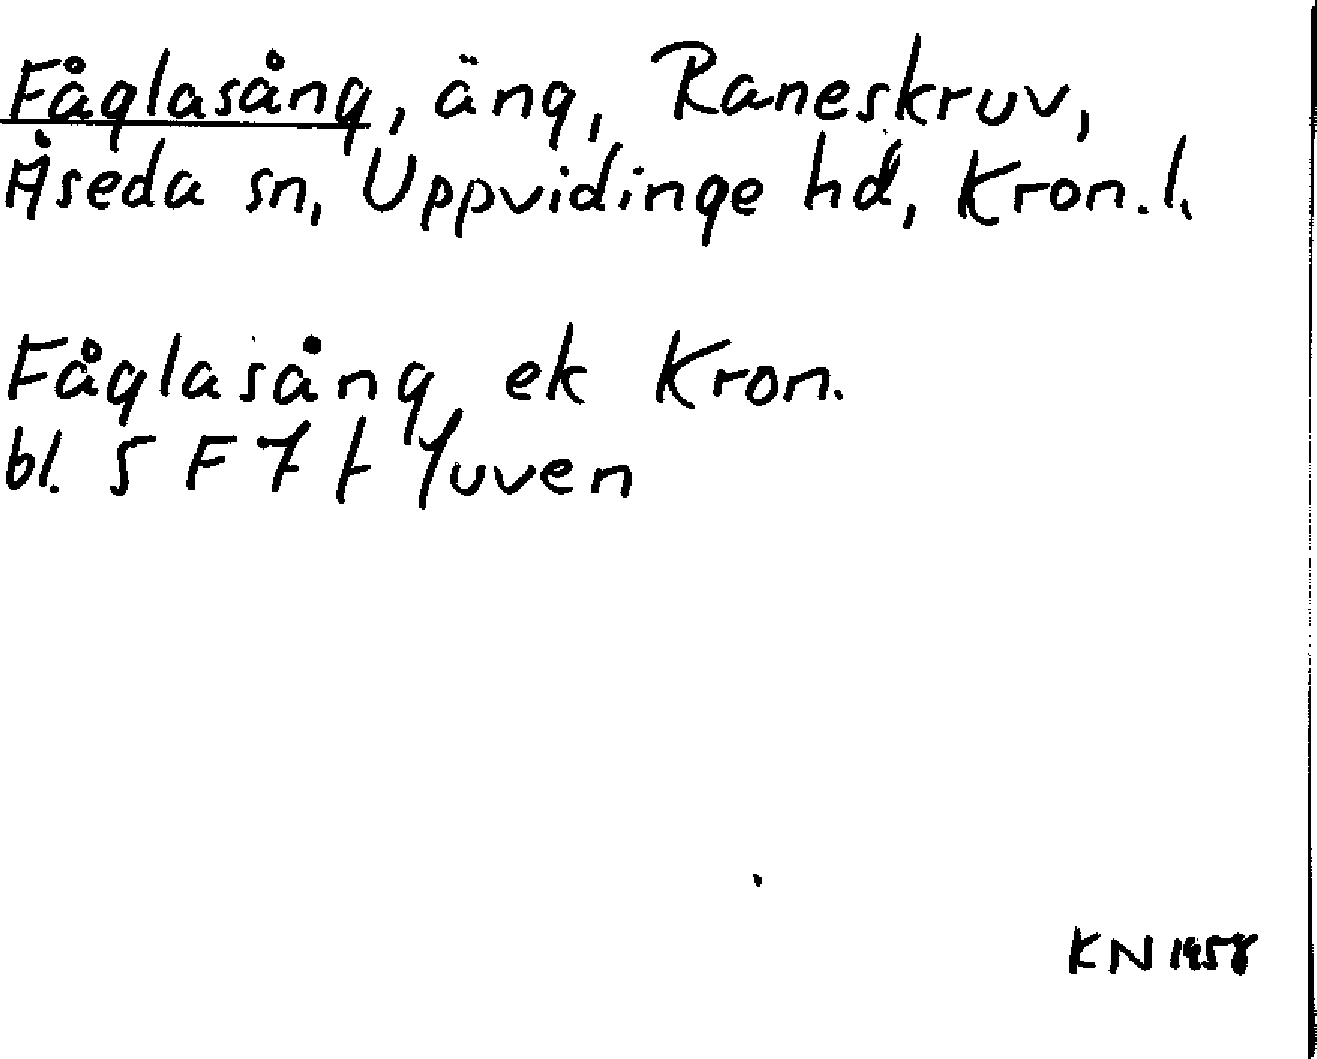 Fåglasång, äng, Raneskruv,
Åseda sn, Uppvidinge hd, Kron. l.
Fåglasång ek Kron.
bl. 5 F 7 f Juven
KN 1958